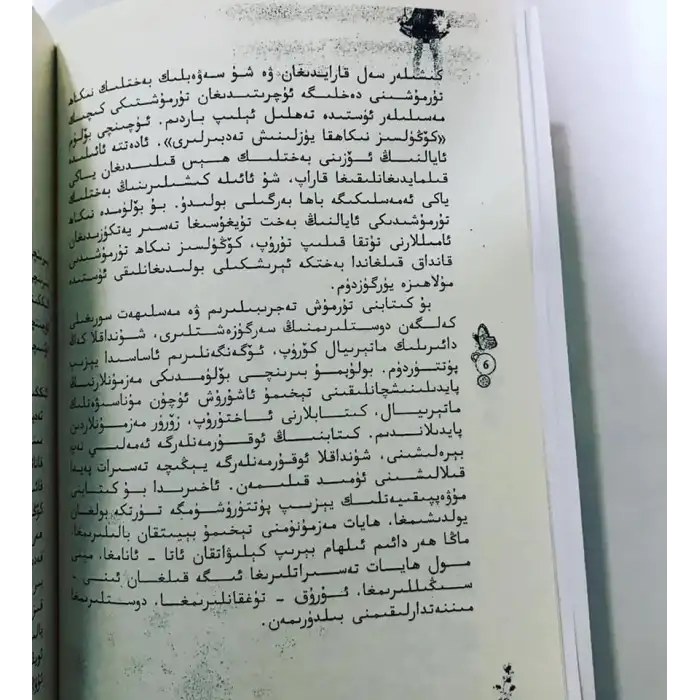 كىشىلەر سەل قارايدىغان ۋە شۇ سەۋەبلىك بەختلىك نىكاھ
تۇرمۇشىنى دەخلىگە ئۇچرىتىدىغان تۇرمۇشتىكى كىچىك
مەسىلىلەر ئۈستىدە تەھلىل ئېلىپ باردىم. ئۈچىنچى بۆلۈم
«كۆڭۈلسىز نىكاھقا يۈزلىنىش تەدبىرلىرى». ئادەتتە ئائىلىدە
ئايالنىڭ ئۆزىنى بەختلىك ھېس قىلىدىغان ياكى
قىلمايدىغانلىقىغا قاراپ، شۇ ئائىلە كىشىلىرىنىڭ بەختلىك
ياكى ئەمەسلىكىگە باھا بەرگىلى بولىدۇ. بۇ بۆلۈمدە نىكاھ
تۇرمۇشىدىكى ئايالنىڭ بەخت تۇيغۇسىغا تەسىر يەتكۈزىدىغان
ئامىللارنى تۇتقا قىلىپ تۇرۇپ، كۆڭۈلسىز نىكاھ تۇرمۇشىدىن
قانداق قىلغاندا بەختكە ئېرىشكىلى بولىدىغانلىقى ئۈستىدە
مۇلاھىزە يۈرگۈزدۈم.
بۇ كىتابنى تۇرمۇش تەجرىبىلىرىم ۋە مەسلىھەت سورىغىلى
كەلگەن دوستلىرىمنىڭ سەرگۈزەشتلىرى، شۇنداقلا كەڭ
دائىرىلىك ماتېرىيال كۆرۈپ، ئۆگەنگەنلىرىم ئاساسىدا يېزىپ
پۈتتۈردۈم. بولۇپمۇ بىرىنچى بۆلۈمدىكى مەزمۇنلارنىڭ
پايدىلىنىشچانلىقىنى تېخىمۇ ئاشۇرۇش ئۈچۈن مۇناسىۋەتلىك
ماتېرىيال، كىتابلارنى ئاختۇرۇپ، زۆرۈر مەزمۇنلاردىن
پايدىلاندىم. كىتابنىڭ ئوقۇرمەنلەرگە ئەمەلىي نەپ
بېرەلىشىنى، شۇنداقلا ئوقۇرمەنلەرگە يېڭىچە تەسىرات پەيدا
قىلالىشىنى ئۈمىد قىلىمەن. ئاخىرىدا بۇ كىتابنى
مۇۋەپپىقىيەتلىك يېزىپ پۈتتۈرۈشۈمگە تۈرتكە بولغان
يولدىشىمغا، ھايات مەزمۇنۇمنى تېخىمۇ بېيىتقان بالىلىرىمغا،
ماڭا ھەر دائىم ئىلھام بېرىپ كېلىۋاتقان ئاتا - ئانامغا، مېنى
مول ھايات تەسىراتلىرىغا ئىگە قىلغان ئىنى -
سىڭىللىرىمغا، ئۇرۇق - تۇغقانلىرىمغا، دوستلىرىمغا
مىننەتدارلىقىمنى بىلدۈرىمەن.
6